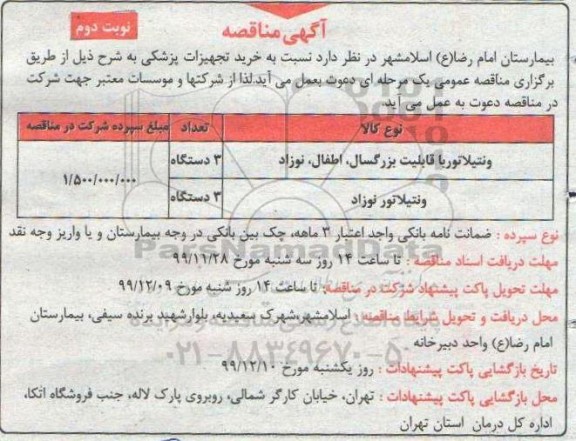 آگهی مناقصه
نوبت دوم
بیمارستان امام رضا(ع) اسلامشهر در نظر دارد نسبت به خرید تجهیزات پزشکی به شرح ذیل از طریق
برگزاری مناقصه عمومی یک مرحله ای دعوت بعمل می آید.لذا از شرکتها و موسسات معتبر جهت شرکت
در مناقصه دعوت به عمل می آید.
نوع کالا تعداد مبلغ سپرده شرکت در مناقصه
ونتیلاتوربا قابلیت بزرگسال، اطفال، نوزاد ۳ دستگاه ۱/۵۰۰/۰۰۰/۰۰۰
ونتیلاتور نوزاد ۳ دستگاه
نوع سپرده : ضمانت نامه بانکی واجد اعتبار ۳ ماهه، چک بین بانکی در وجه بیمارستان و یا واریز وجه نقد
مهلت دریافت اسناد مناقصه : تا ساعت ۱۴ روز سه شنبه مورخ ۹۹/۱۱/۲۸
مهلت تحویل پاکت پیشنهاد شرکت در مناقصه: تا ساعت ۱۴ روز شنبه مورخ ۹۹/۱۲/۰۹
محل دریافت و تحویل شرایط مناقصه : اسلامشهر،شهرک سعیدیه، بلوارشهید برنده سیفی، بیمارستان
امام رضا(ع) واحد دبیرخانه
تاریخ بازگشایی پاکت پیشنهادات : روز یکشنبه مورخ ۹۹/۱۲/۱۰
محل بازگشایی پاکت پیشنهادات : تهران، خیابان کارگر شمالی، روبروی پارک لاله، جنب فروشگاه اتکا،
اداره کل درمان استان تهران
ParsNamadData
۰۲۱-۸۸۳۴۹۶۷۰-۵